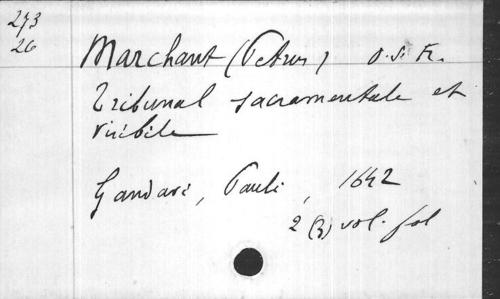 273
26
Marchant (Petrus) O.S.Fr.
Tribunal sacramentale et
visibile
Gandavi, Pauli, 1642
2 (3) vol. fol